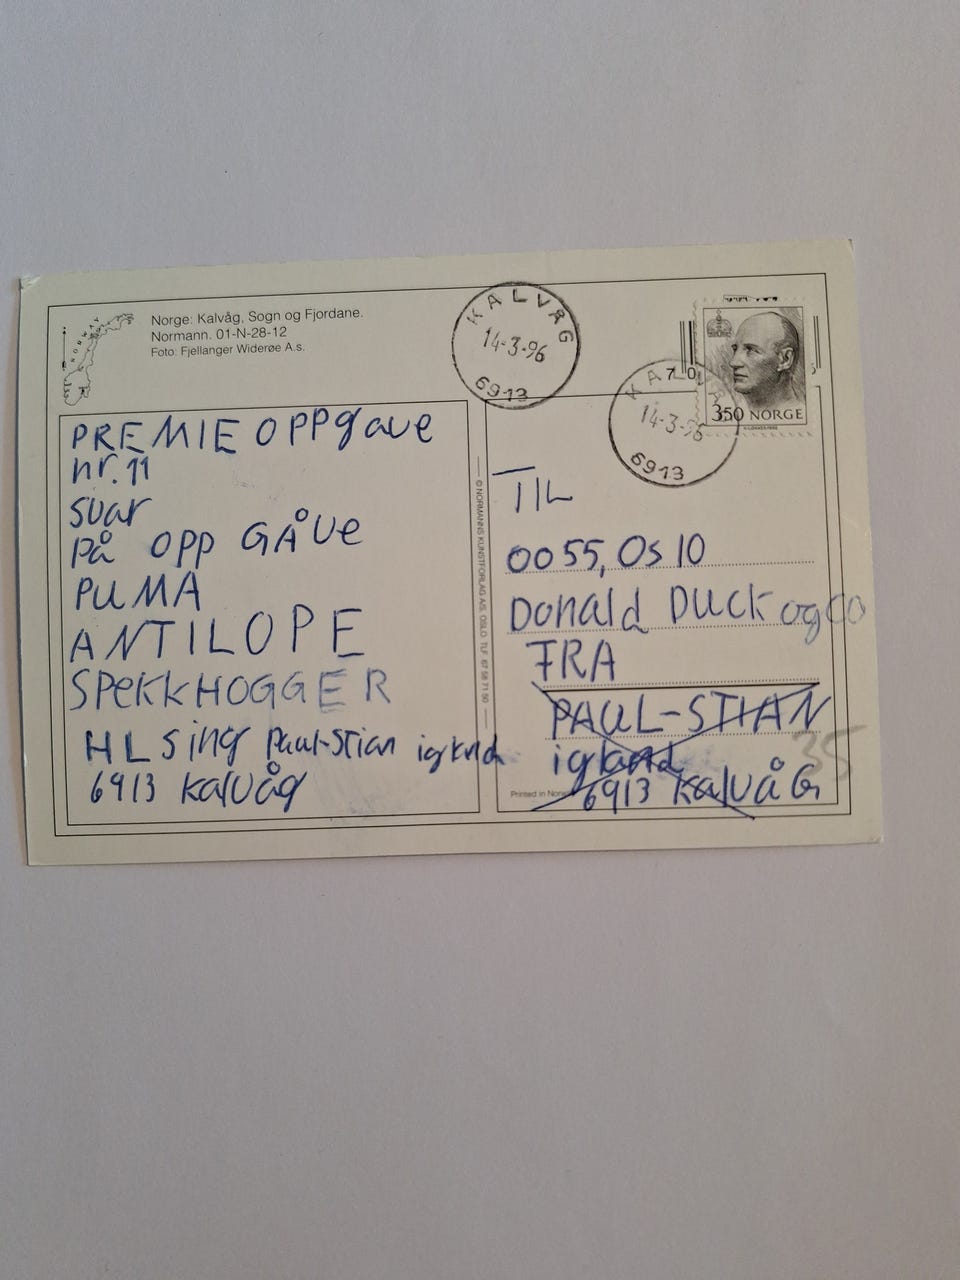 Norge: Kalvåg, Sogn og Fjordane.
Normann. 01-N-28-12
Foto: Fjellanger Widerøe A.s.
NORWAY
KALVÅG
14-3-96
6913
KALVÅG
14-3-96
6913
350 NORGE
PREMIE OPPgave
nr. 11
svar
På OPP GÅVe
PUMA
ANTILOPE
SPeKKHOGGER
HLSing Paul-Stian igland
6913 Kalvåg
© NORMANNS KUNSTFORLAG A/S, OSLO TLF. 67 58 71 50
TIL
0055, Os 10
Donald DUCK og CO
FRA
PAUL-STIAN
igland
6913 KalvåG
Printed in
35